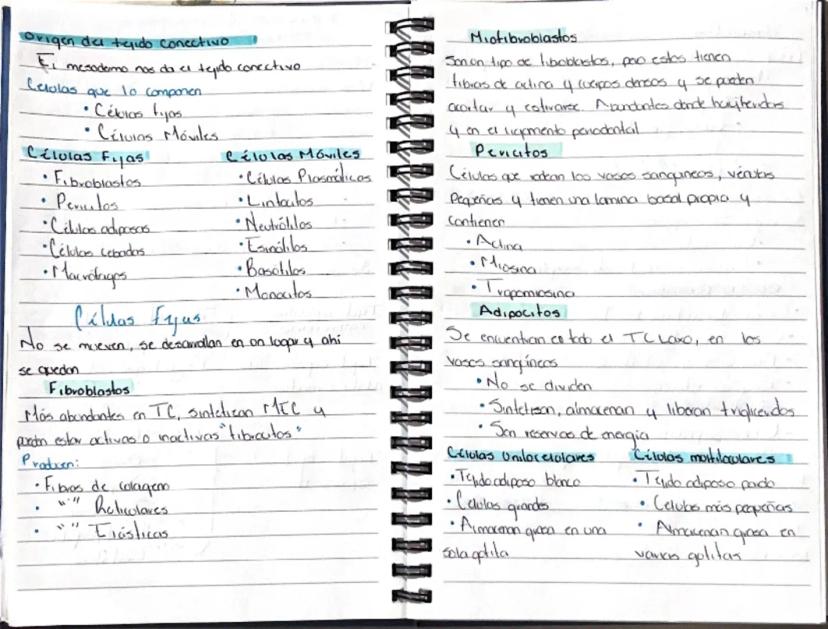 Origen del tejido conectivo
El mesodermo nos da el tejido conectivo
Celulas que lo componen
• Células fijas
• Células Móviles
Células Fijas
• Fibroblastos
• Pericitos
• Células adiposas
• Células cebadas
• Macrófagos
Células Móviles
• Células Plasmáticas
• Linfocitos
• Neutrófilos
• Eosinófilos
• Basófilos
• Monocitos
Células fijas
No se mueven, se desarrollan en un lugar y ahi
se quedan
Fibroblastos
Más abundantes en TC, sintetizan MEC y
pueden estar activas o inactivas "fibrocitos"
Producen:
• Fibras de colageno
• " " Reticulares
• " " Elásticas
Miofibroblastos
Son un tipo de fibroblastos, pero estos tienen
fibras de actina y cuerpos densos y se pueden
acortar y estirarse. Abundantes donde hay heridas
y en el ligamento periodontal
Pericitos
Células que rodean los vasos sanguineos, vénulas
Pequeñas y tienen una lamina basal propia y
contienen
• Actina
• Miosina
• Tropomiosina
Adipocitos
Se encuentran en todo el TC Laxo, en los
vasos sangíneos
• No se dividen
• Sintetizan, almacenan y liberan trigliceridos
• Son reservas de energia
Células Unilocelolares
• Tejido adiposo blanco
• Celulas grandes
• Almacenan grasa en una
sola gotita
Células moltiloculares
• Tejido adiposo pardo
• Celulas más pequeñas
• Almacenan grasa en
varias gotitas